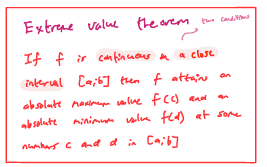 Extreme value theorem
two conditions
If f is continuous on a close
interval [a;b] then f attains an
absolute maximum value f(c) and an
absolute minimum value f(d) at some
numbers c and d in [a;b]